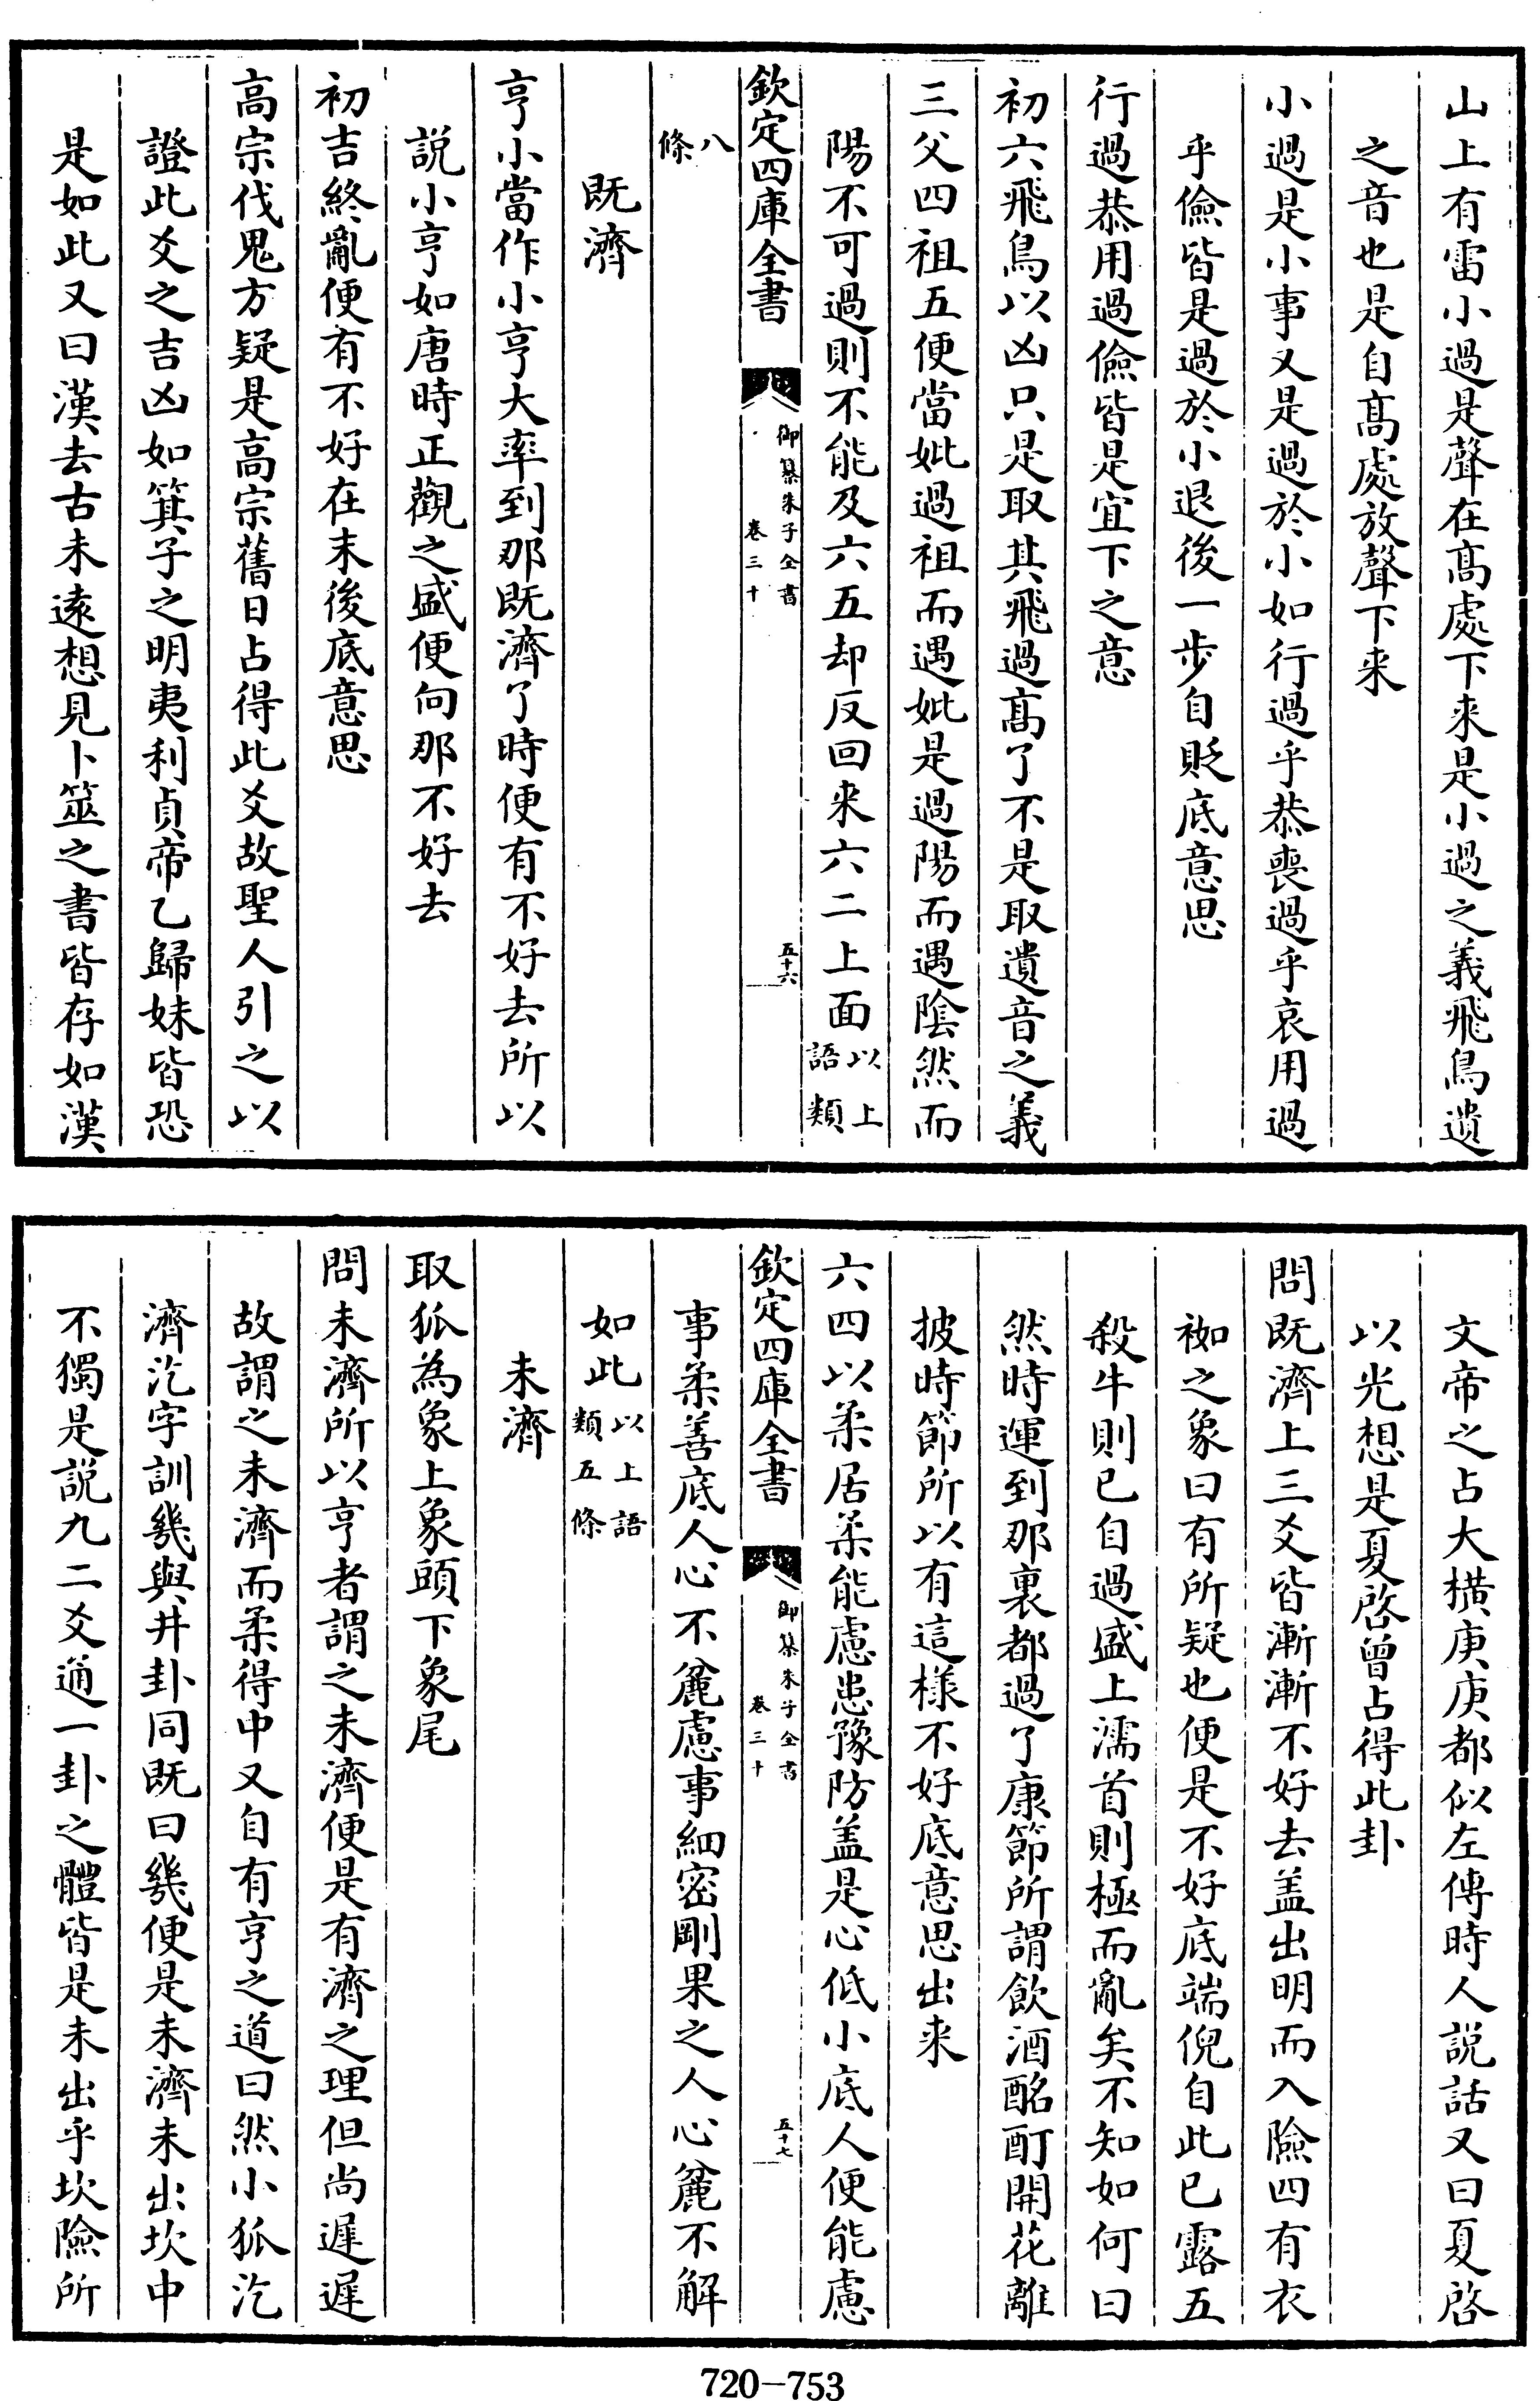 山上有雷小過是聲在髙處下来是小過之義飛鳥遺
之音也是自髙處放聲下来
小過是小事又是過於小如行過乎恭喪過乎哀用過
乎儉皆是過於小退後一步自貶底意思
行過恭用過儉皆是宜下之意
初六飛鳥以凶只是取其飛過髙了不是取遺音之義
三父四祖五便當妣過祖而遇妣是過陽而遇隂然而
陽不可過則不能及六五却反回来六二上面以上語類
欽定四庫全書
御纂朱子全書
卷三十
五十六
八條
既濟
亨小當作小亨大率到那既濟了時便有不好去所以
説小亨如唐時正觀之盛便向那不好去
初吉終亂便有不好在末後底意思
高宗伐鬼方疑是高宗舊日占得此爻故聖人引之以
證此爻之吉凶如箕子之明夷利貞帝乙歸妹皆恐
是如此又曰漢去古未逺想見卜筮之書皆存如漢
文帝之占大横庚庚都似左傳時人説話又曰夏啓
以光想是夏啓曾占得此卦
問既濟上三爻皆漸漸不好去盖出明而入險四有衣
袽之象曰有所疑也便是不好底端倪自此已露五
殺牛則已自過盛上濡首則極而亂矣不知如何曰
然時運到那裏都過了康節所謂飲酒酩酊開花離
披時節所以有這樣不好底意思出来
六四以柔居柔能慮患豫防盖是心低小底人便能慮
欽定四庫全書
御纂朱子全書
卷三十
五十七
事柔善底人心不麄慮事細密剛果之人心麄不解
如此以上語類五條
未濟
取狐為象上象頭下象尾
問未濟所以亨者謂之未濟便是有濟之理但尚遲遲
故謂之未濟而柔得中又自有亨之道曰然小狐汔
濟汔字訓幾與井卦同既曰幾便是未濟未出坎中
不獨是説九二爻通一卦之體皆是未出乎坎險所
720-753